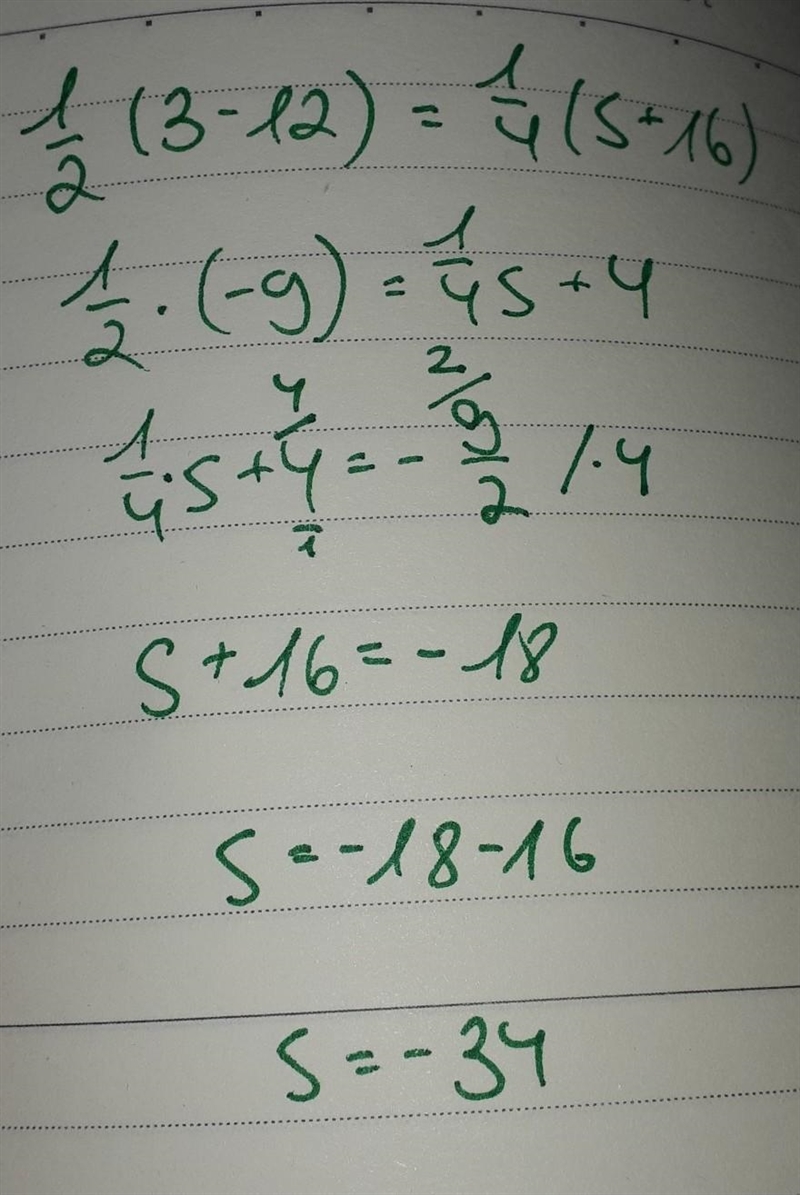 1/2 (3-12) = 1/4 (s+16)
1/2 · (-9) = 1/4 s + 4
4/ 2/
1/4 · s + 4/1 = - 9/2 /·4
s + 16 = - 18
s = -18 - 16
s = - 34